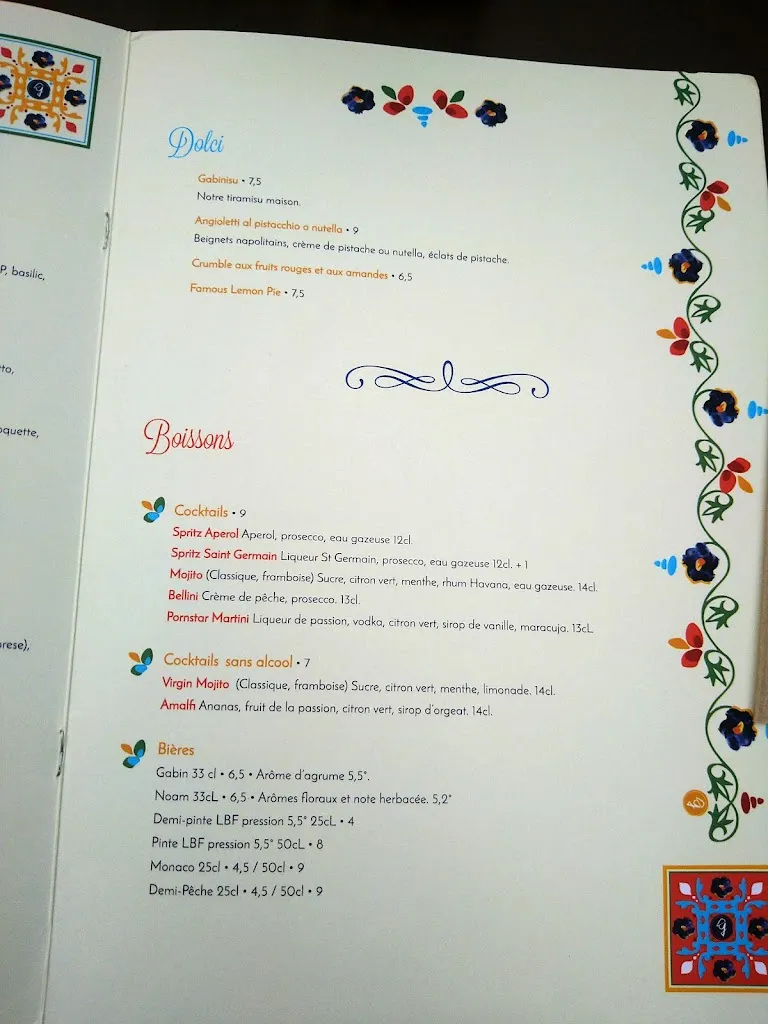 P, basilic,
to,
oquette,
rese),
Dolci
Gabinisu • 7,5
Notre tiramisu maison.
Angioletti al pistacchio o nutella • 9
Beignets napolitains, crème de pistache ou nutella, éclats de pistache.
Crumble aux fruits rouges et aux amandes • 6,5
Famous Lemon Pie • 7,5
Boissons
Cocktails • 9
Spritz Aperol Aperol, prosecco, eau gazeuse 12cl.
Spritz Saint Germain Liqueur St Germain, prosecco, eau gazeuse 12cl. + 1
Mojito (Classique, framboise) Sucre, citron vert, menthe, rhum Havana, eau gazeuse. 14cl.
Bellini Crème de pêche, prosecco. 13cl.
Pornstar Martini Liqueur de passion, vodka, citron vert, sirop de vanille, maracuja. 13cL
Cocktails sans alcool • 7
Virgin Mojito (Classique, framboise) Sucre, citron vert, menthe, limonade. 14cl.
Amalfi Ananas, fruit de la passion, citron vert, sirop d'orgeat. 14cl.
Bières
Gabin 33 cl • 6,5 • Arôme d'agrume 5,5°.
Noam 33cL • 6,5 • Arômes floraux et note herbacée. 5,2°
Demi-pinte LBF pression 5,5° 25cL • 4
Pinte LBF pression 5,5° 50cL • 8
Monaco 25cl • 4,5 / 50cl • 9
Demi-Pêche 25cl • 4,5 / 50cl • 9